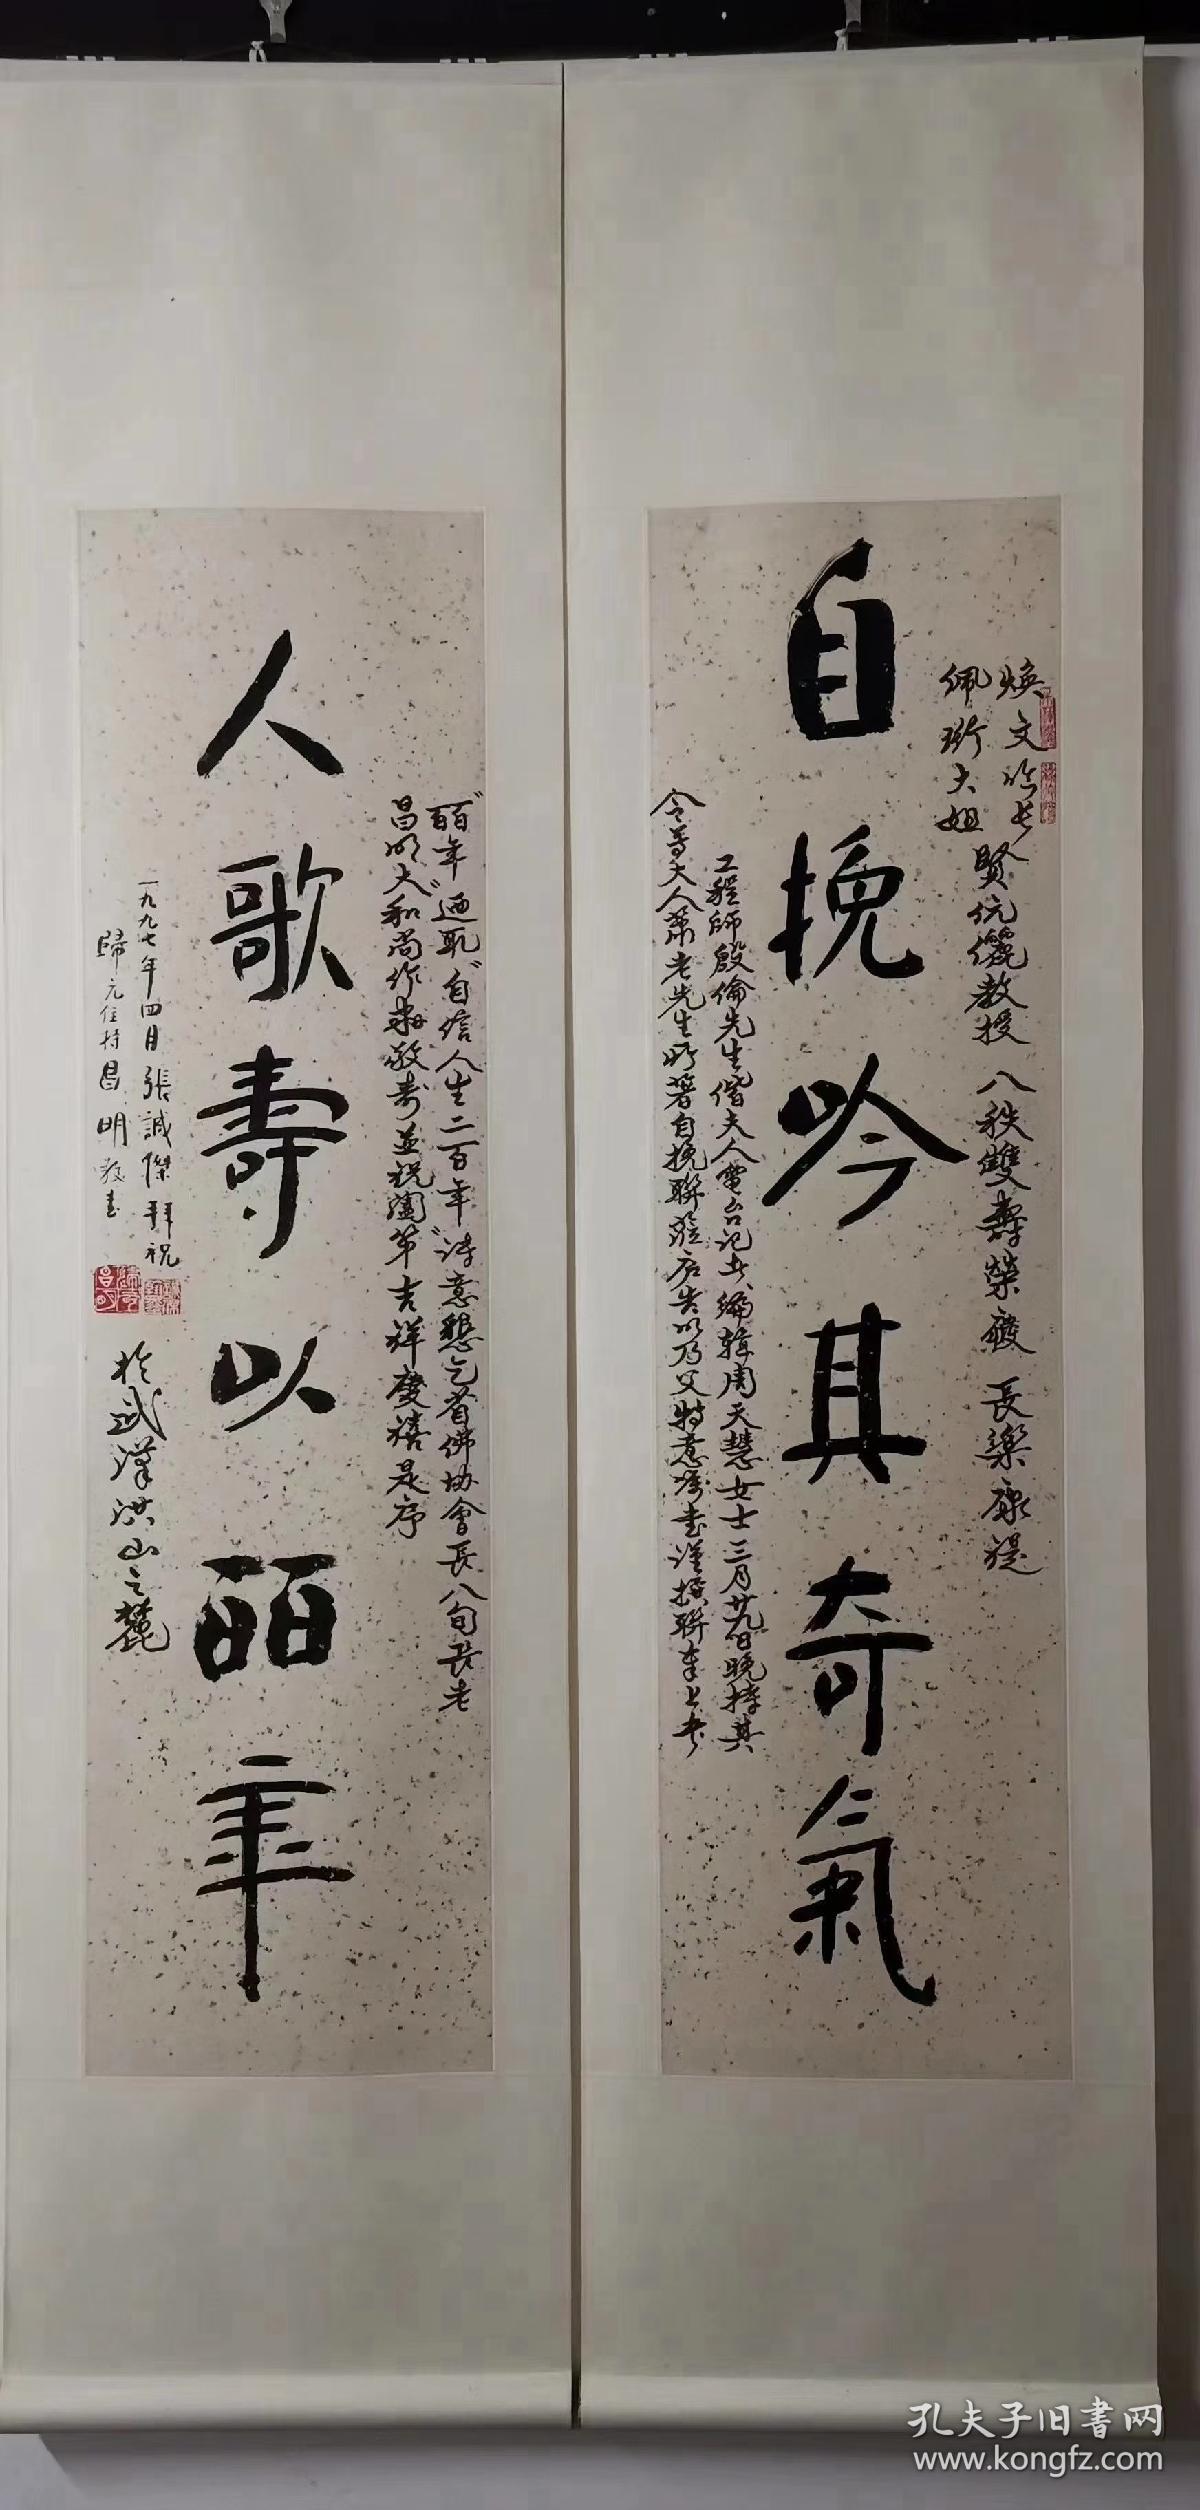 自挽吟其奇氣
煥文
佩珩大姐
賢伉儷教授 八秩雙壽榮慶 長樂康禔
工程師殷倫先生偕夫人電台記者、編輯周天慧女士三月廿九日晚持其
令尊大人蕭老先生所著自挽聯 以乃父特意 書謹撰聯奉上
人歌壽以皕年
皕年 自信人生二百年 詩意懇乞省佛協會長八旬長老
昌明大和尚作 敬書並祝 吉祥慶禧是序
一九九七年四月 張誠傑 拜祝
歸元住持昌明敬書
於武漢洪山之麓
孔夫子旧書网
www.kongfz.com